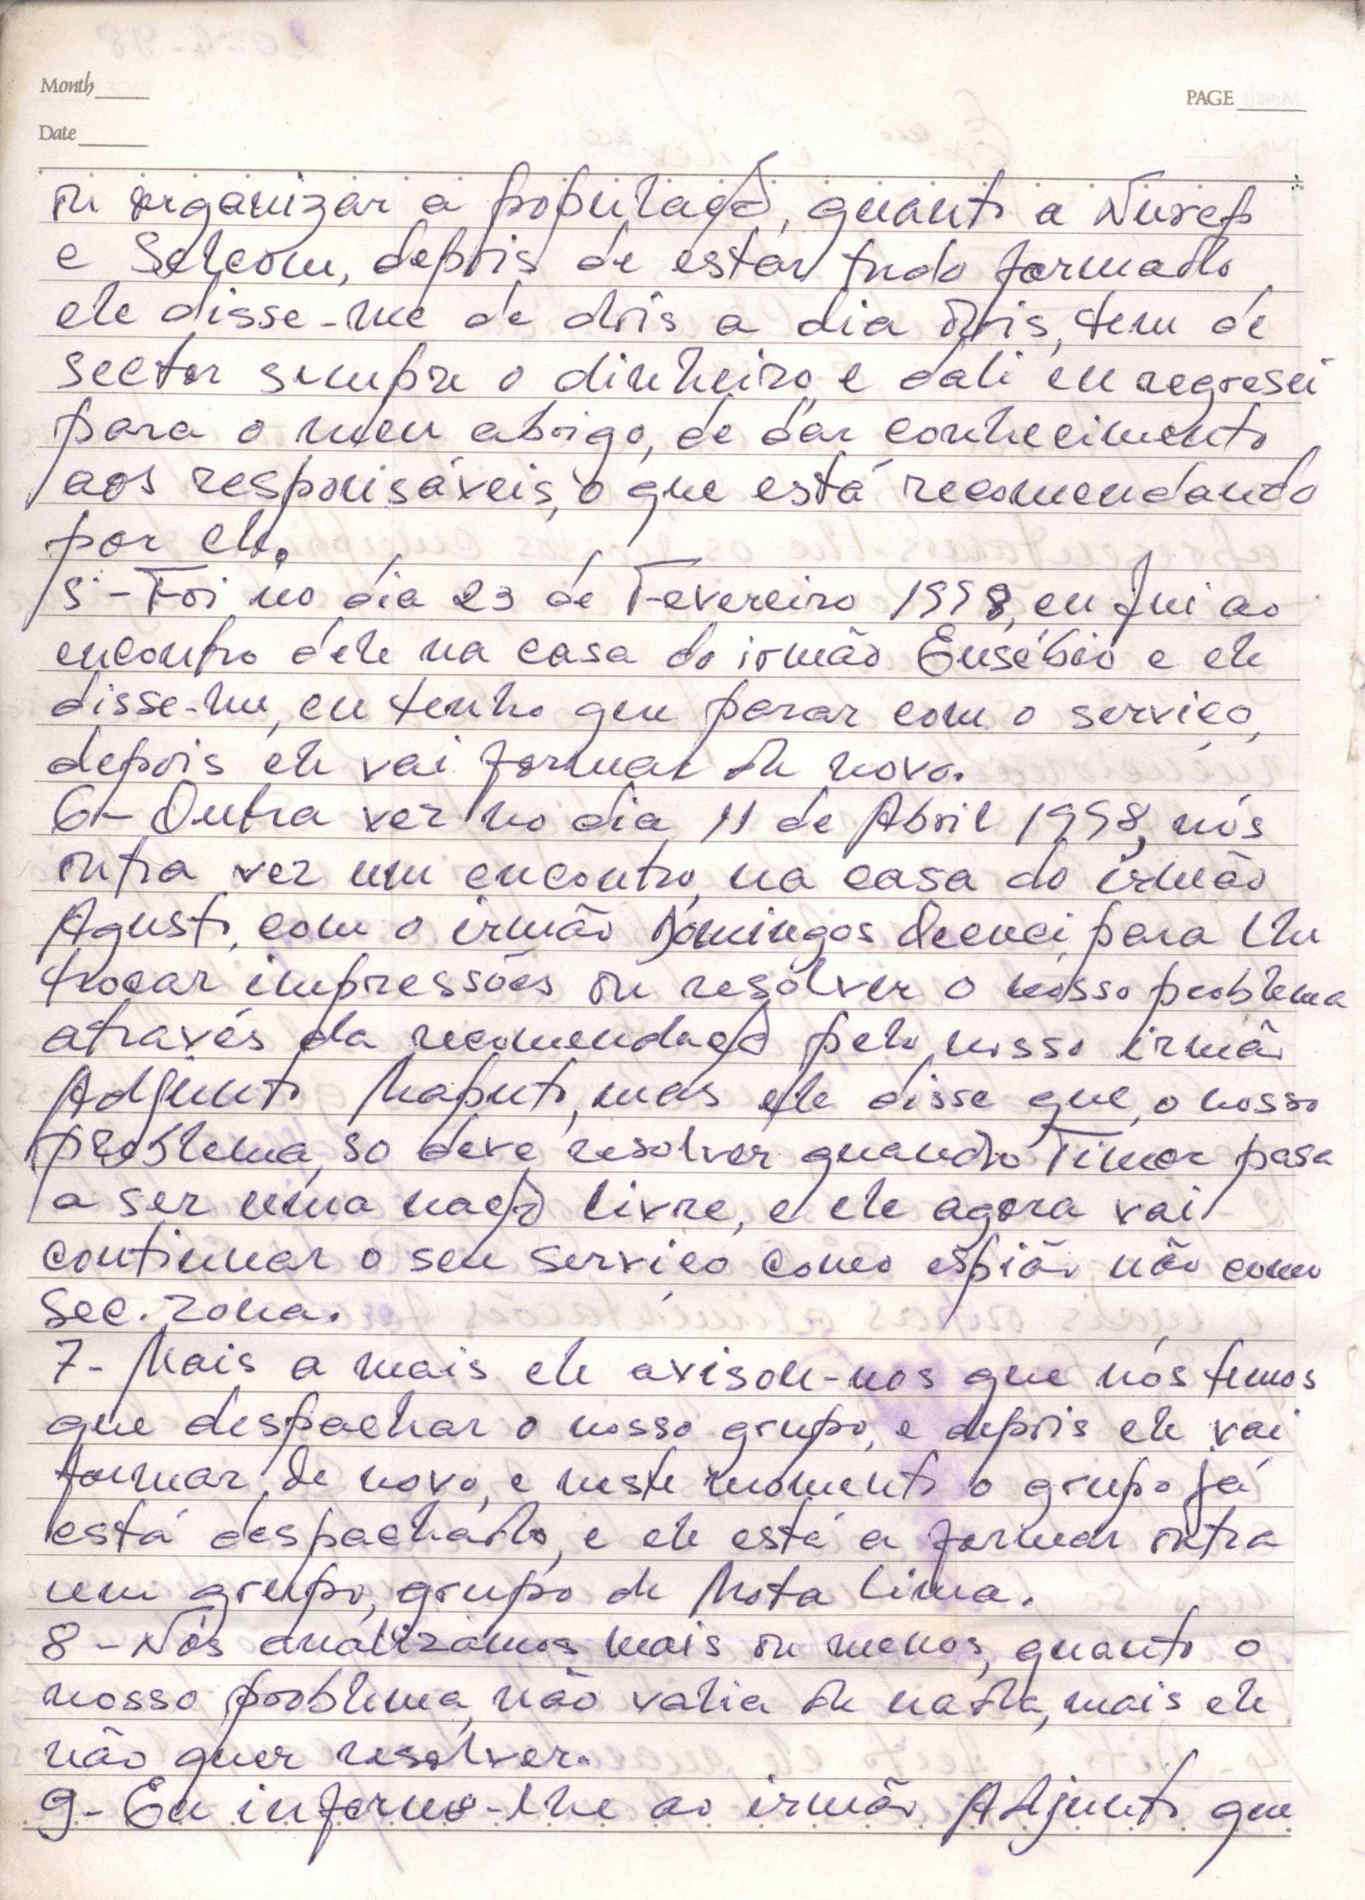 Month
Date
PAGE
ou organizar a população, quanto a Nurep
e Selcom, depois de estar tudo formado
ele disse-me de dois a dia dois, tem de
sector sempre o dinheiro, e dali eu regresei
para o meu abrigo, de dar conhecimento
aos responsáveis, o que está recomendando
por ele.
5 - Foi no dia 23 de Fevereiro 1998, eu fui ao
encontro dele na casa do irmão Eusébio e ele
disse-me, eu tenho que parar com o serviço,
depois ele vai formar de novo.
6 - Outra vez no dia 11 de Abril 1998, nós
outra vez um encontro, na casa do irmão
Agusto, com o irmão Domingos para lhe
trocar impressões ou resolver o nosso problema
através da recomendação pelo nosso irmão
Adjunto Maputo, mas ele disse que, o nosso
problema, so deve resolver quando Timor pasa
a ser uma nação livre, e ele agora vai
continuar o seu serviço como espião não como
Sec. zona.
7 - Mais a mais ele avisou-nos que nós temos
que despachar o nosso grupo, e depois ele vai
formar de novo, e neste momento o grupo já
está despachado, e ele está a formar outra
um grupo, grupo de Mota Lima.
8 - Nós analizamos mais ou menos, quanto o
nosso problema, não valia de nada, mais ele
não quer resolver.
9 - Eu informo-lhe ao irmão Adjunto que